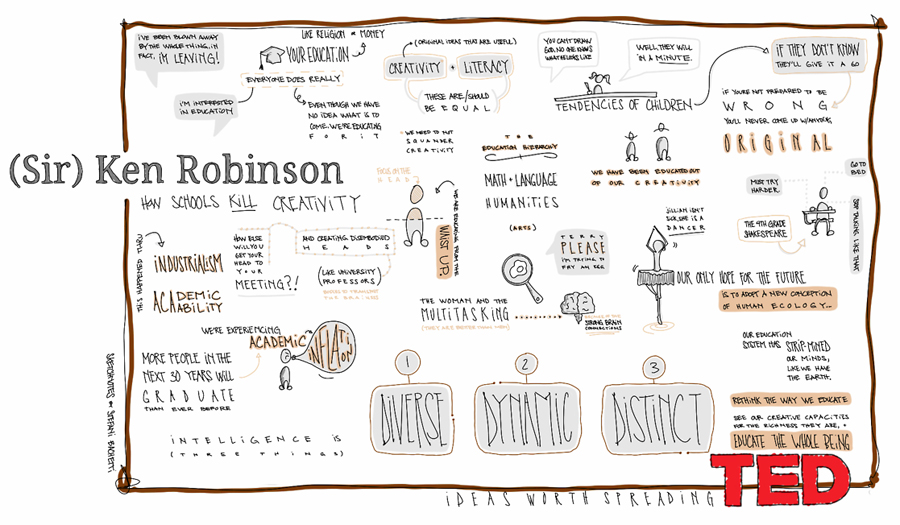 i'VE BEEN BLOWN AWAY
BY THE WHOLE THING. IN
FACT, I'M LEAVING!
i'M INTERESTED
IN EDUCATION!
LIKE RELIGION + MONEY
YOUR EDUCATION
EVERYONE DOES REALLY
EVEN THOUGH WE HAVE
NO IDEA WHAT IS TO
COME, WE'RE EDUCATING
FOR IT
(ORIGINAL IDEAS THAT ARE USEFUL)
CREATIVITY + LITERACY
THESE ARE/SHOULD
BE EQUAL
WE NEED TO NOT
SQUANDER
CREATIVITY
YOU CAN'T DRAW
GOD. NO ONE KNOWS
WHAT HE LOOKS LIKE
WELL, THEY WILL
IN A MINUTE.
TENDENCIES OF CHILDREN
IF THEY DON'T KNOW
THEY'LL GIVE IT A GO
IF YOU'RE NOT PREPARED TO BE
WRONG
YOU'LL NEVER COME UP W/ANYTHING
ORiGiNAL
(Sir) Ken Robinson
HOW SCHOOLS KILL CREATIVITY
FOCUS ON THE
HEAD
WE ARE EDUCATED FROM THE
WAIST UP.
THE
EDUCATION HIERARCHY
MATH + LANGUAGE
HUMANITIES
(ARTS)
WE HAVE BEEN EDUCATED
OUT OF OUR CREATIVITY
GO TO
BED
MUST TRY
HARDER
STOP TALKING LIKE THAT
THE 9TH GRADE
SHAKESPEARE
INDUSTRIALISM
ACADEMIC
ABILITY
HOW ELSE
WILL YOU
GET YOUR
HEAD TO
YOUR
MEETING?!
AND CREATING DISEMBODIED
HEADS
(LIKE UNIVERSITY
PROFESSORS)
TERRY
PLEASE
I'M TRYING TO
FRY AN EGG
JILLIAN ISN'T
SICK, SHE IS A
DANCER
OUR ONLY HOPE FOR THE FUTURE
IS TO ADOPT A NEW CONCEPTION
OF HUMAN ECOLOGY...
THE WOMAN AND THE
MULTITASKING
(THEY ARE BETTER THAN MEN)
STRONG BRAIN
CONNECTIONS
WE'RE EXPERIENCING
ACADEMIC
iNFLATION
MORE PEOPLE IN THE
NEXT 30 YEARS WILL
GRADUATE
THAN EVER BEFORE
INTELLIGENCE IS
(THREE THINGS)
1
DiVERSE
2
DYNAMIC
3
DiSTINCT
OUR EDUCATION
SYSTEM HAS STRIP-MINED
OUR MINDS,
LIKE WE HAVE
THE EARTH.
RETHINK THE WAY WE EDUCATE
SEE OUR CREATIVE CAPACITIES
FOR THE RICHNESS THEY ARE, +
EDUCATE THE WHOLE BEING
TED
iDEAS WORTH SPREADING